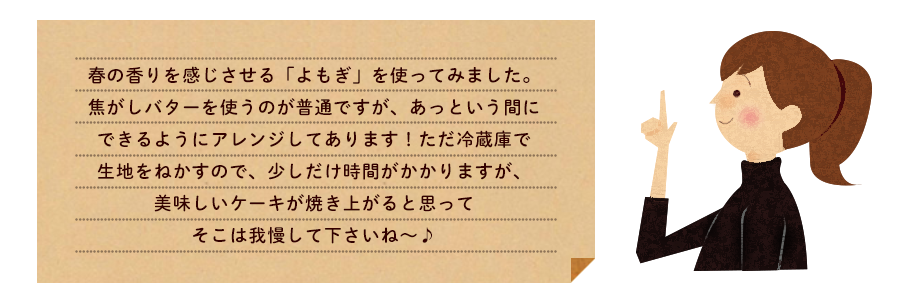 春の香りを感じさせる「よもぎ」を使ってみました。
焦がしバターを使うのが普通ですが、あっという間に
できるようにアレンジしてあります！ただ冷蔵庫で
生地をねかすので、少しだけ時間がかかりますが、
美味しいケーキが焼き上がると思って
そこは我慢して下さいね～♪